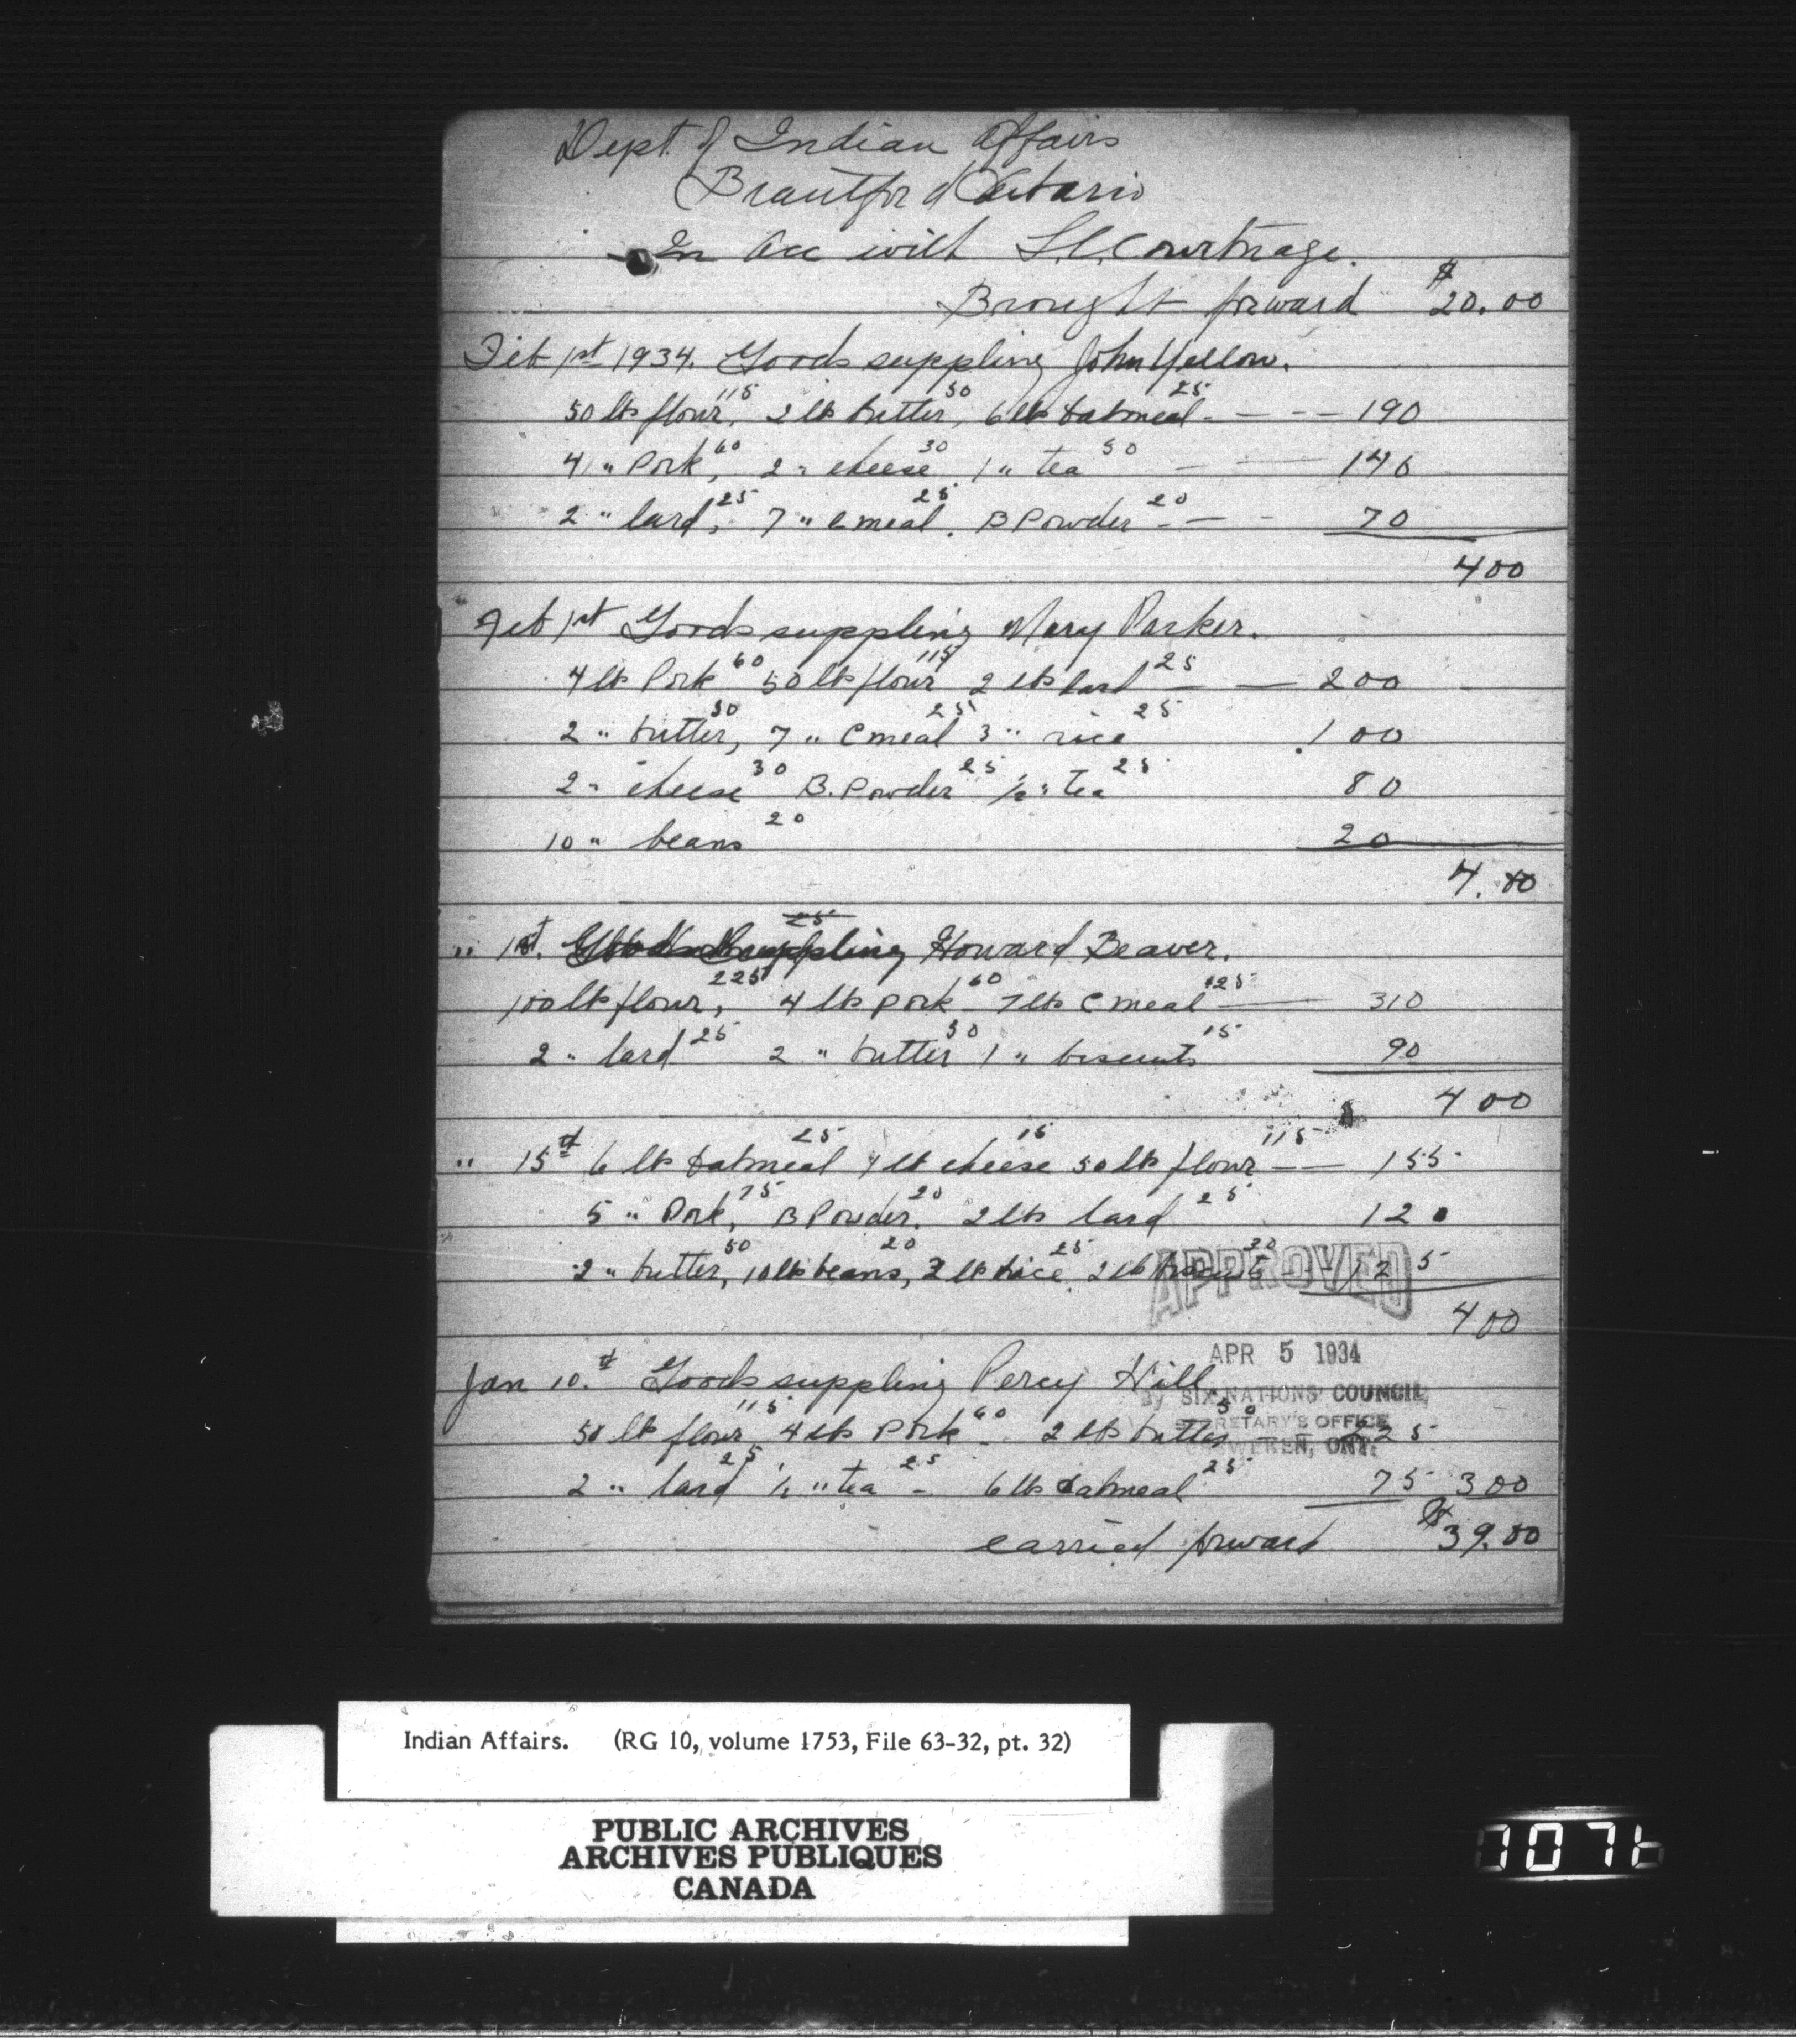 Dept. of Indian Affairs
Brantford Ontario
In Acc with S.C. Courtnage.
Brought forward $20.00
Feb 1st 1934. Goods suppling John Yellow.
50 lbs flour, 115 2 lb butter, 50 6 lbs oatmeal 25 - - - 190
4 " Pork, 60 2 " cheese 30 1 " tea 50 - - 140
2 " lard, 25 7 " C meal. 25 B Powder 20 - - - 70
400
Feb 1st Goods suppling Mary Parker.
4 lb Pork 60 50 lbs flour 115 2 lbs lard 25 - - 200
2 " butter, 50 7 " C meal 25 3 " rice 25 100
2 " cheese 30 B. Powder 25 1/2 " tea 25 80
10 " beans 20 20
4.00
" 1st. Goods suppling Howard Beaver.
100 lb flour, 225 4 lbs pork 60 7 lbs C meal 25 - 310
2 " lard 25 2 " butter 50 1 " biscuits 15 90
400
" 15th 6 lb oatmeal 25 1 lb cheese 15 50 lb flour 115 - - 155
5 " Pork, 75 B Powder. 20 2 lbs lard 25 120
2 " butter, 50 10 lb beans, 20 3 lb rice 25 2 lb biscuits 30 125
400
APPROVED
APR 5 1934
By SIX NATIONS COUNCIL
SECRETARY'S OFFICE
OHSWEKEN, ONT.
Jan 10.th Goods suppling Percy Hill
50 lb flour 115 4 lbs Pork 60 2 lbs butter 50 225
2 " lard 25 1/2 " tea 25 - 6 lbs oatmeal 25 75 300
carried forward $39.00
Indian Affairs. (RG 10, volume 1753, File 63-32, pt. 32)
PUBLIC ARCHIVES
ARCHIVES PUBLIQUES
CANADA